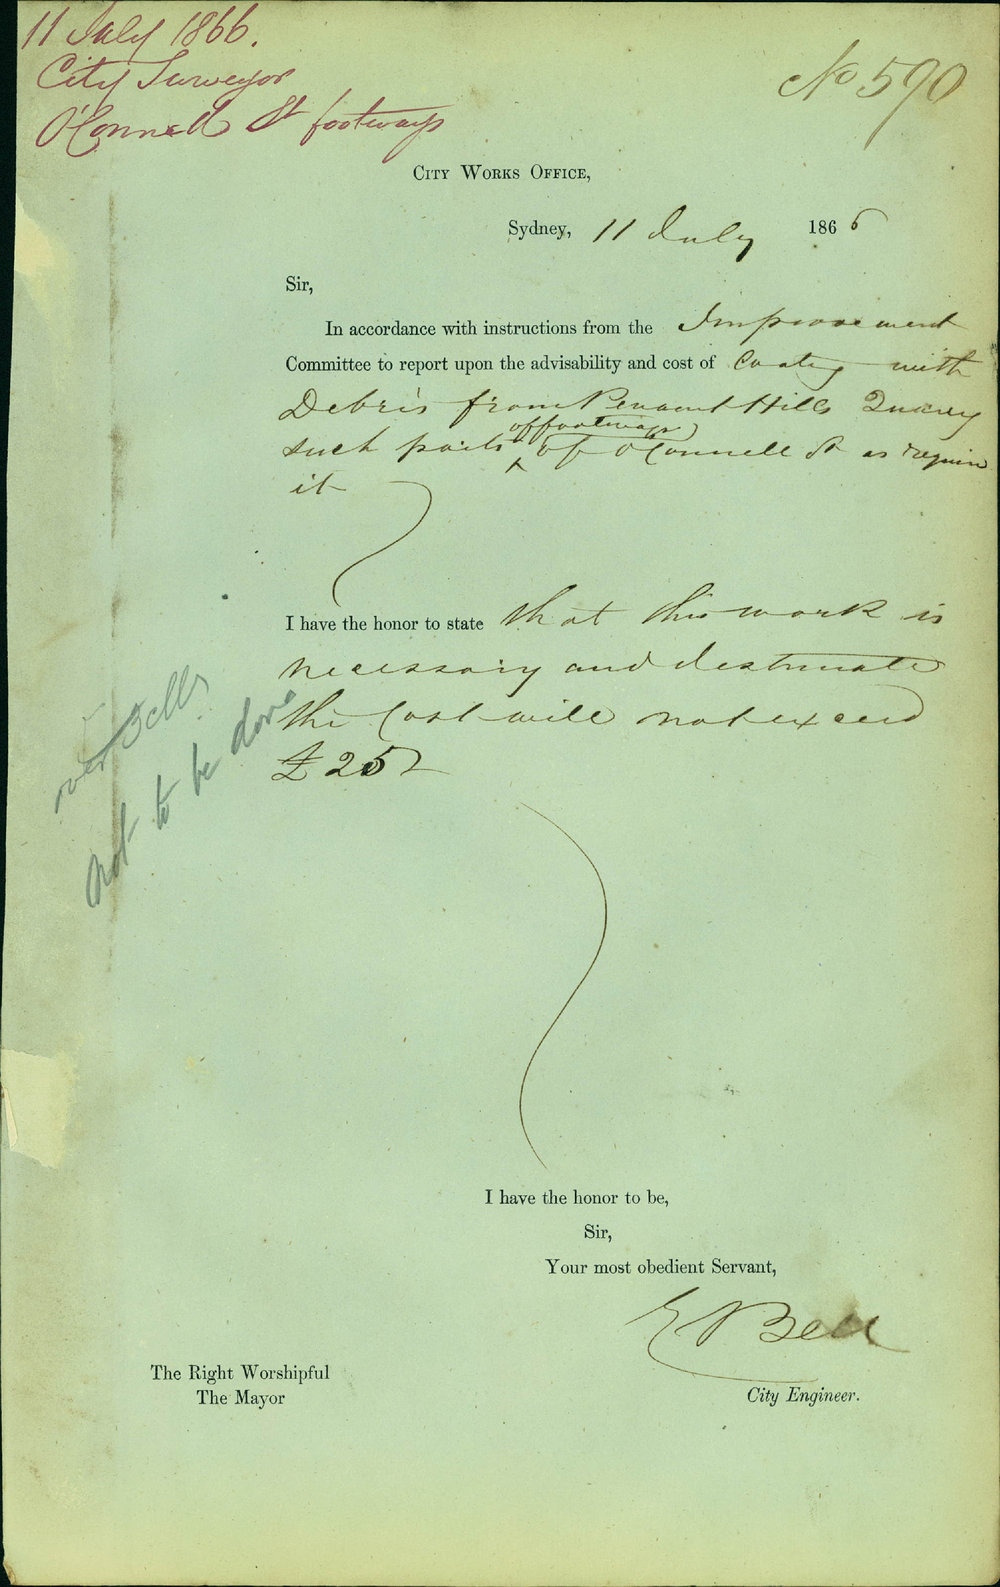 11 July 1866.
City Surveyor
O'Connell St footways
No 590
City Works Office,
Sydney, 11 July 1866
Sir,
In accordance with instructions from the Improvement
Committee to report upon the advisability and cost of Coatg with
Debris from Penant Hills Quarry
such parts of footways
of O'Connell St as require
it
I have the honor to state that this work is
necessary and I estimate
the Cost will not exceed
£25
over Bells
Not to be done
I have the honor to be,
Sir,
Your most obedient Servant,
E Bell
The Right Worshipful
The Mayor
City Engineer.